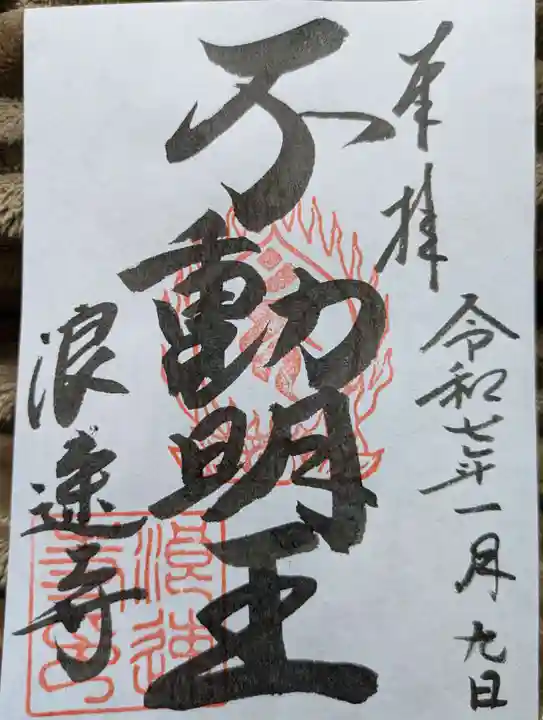 奉拝
令和七年一月九日
不動明王
浪速寺
浪速寺印